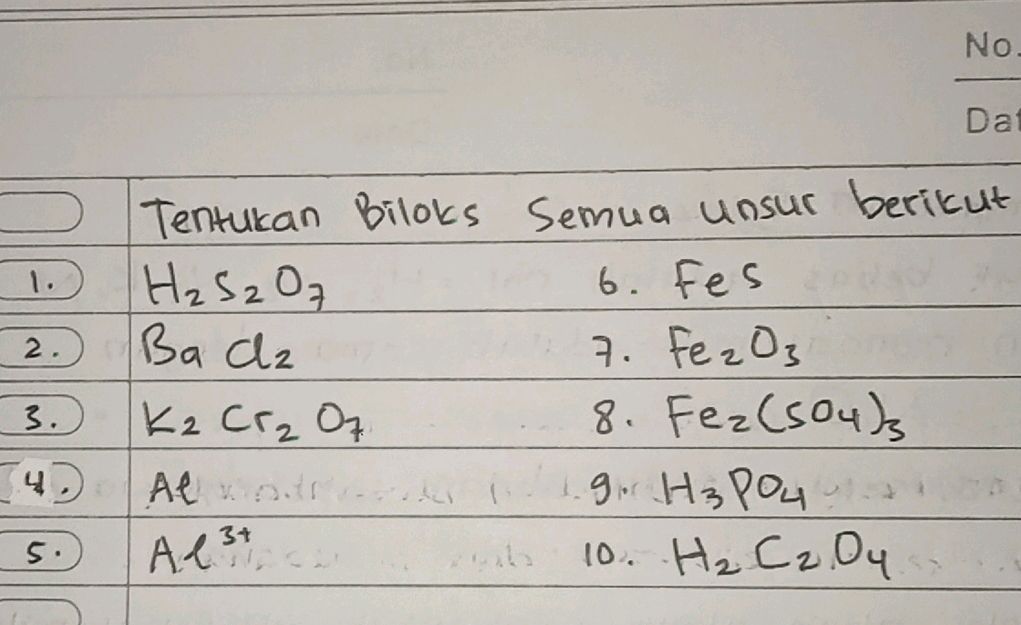 No.
Dat
Tentukan Biloks Semua unsur berikut
1. H₂S₂O₇ 6. FeS
2. BaCl₂ 7. Fe₂O₃
3. K₂Cr₂O₇ 8. Fe₂(SO₄)₃
4. Al 9. H₃PO₄
5. Al³⁺ 10. H₂C₂O₄